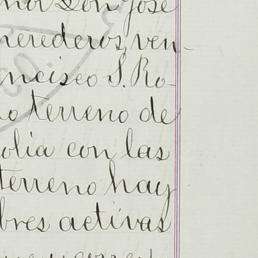 nor Don José
herederos, ven-
ncisco S. Ro-
o terreno de
olia con las
terreno hay
bres activas